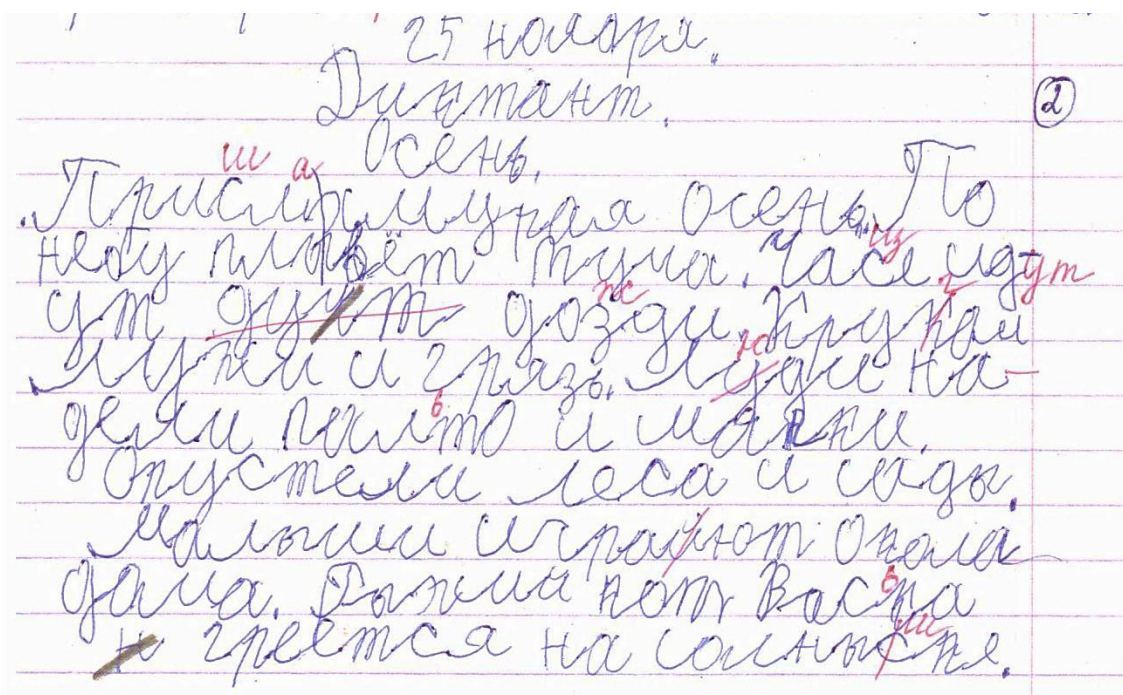 25 ноября.
Диктант.
2
Осень.
ш а
Прислалмурая осень. По
небу плывёт туча. Часе идут
ут дуут дозди. Крукам
лужи и грязь. Луди на-
дели палто и шапки.
Опустели леса и сады.
Малыши играйют окала
дама. Рыжий кот Васка
греется на солныске.